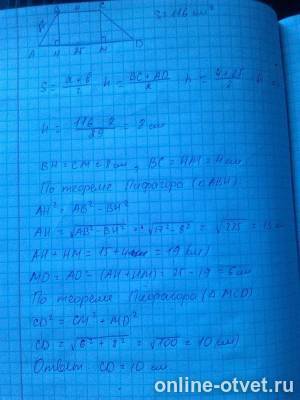 B 4 C
S = 116 см²
A H 25 M D
S = a+b/2 · h = BC+AD/2 · h = 4+25/2 · h =
h = 116·2/29 = 8 см
BH = CM = 8 см, BC = HM = 4 см
По теореме Пифагора (△ABH):
AH² = AB² - BH²
AH = √AB² - BH² = √17² - 8² = √225 = 15 см
AH + HM = 15 + 4 = 19 (см)
MD = AD - (AH + HM) = 25 - 19 = 6 см
По теореме Пифагора (△MCD)
CD² = CM² + MD²
CD = √6² + 8² = √100 = 10 (см)
Ответ: CD = 10 см.
online-otvet.ru